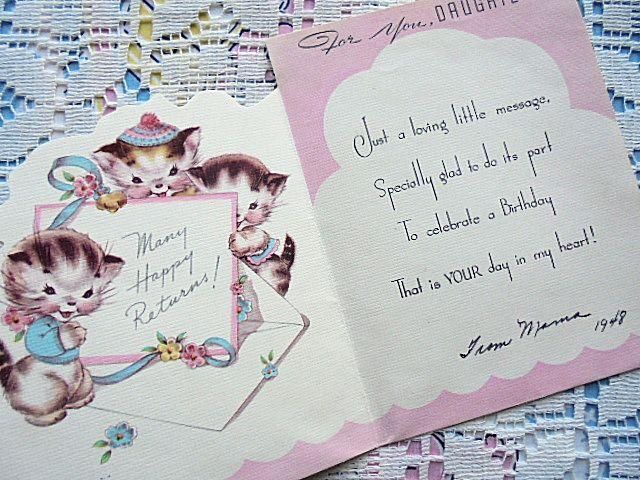 Many
Happy
Returns!
For You,
Just a loving little message,
Specially glad to do its part
To celebrate a Birthday
That is YOUR day in my heart!
From Mama 1948